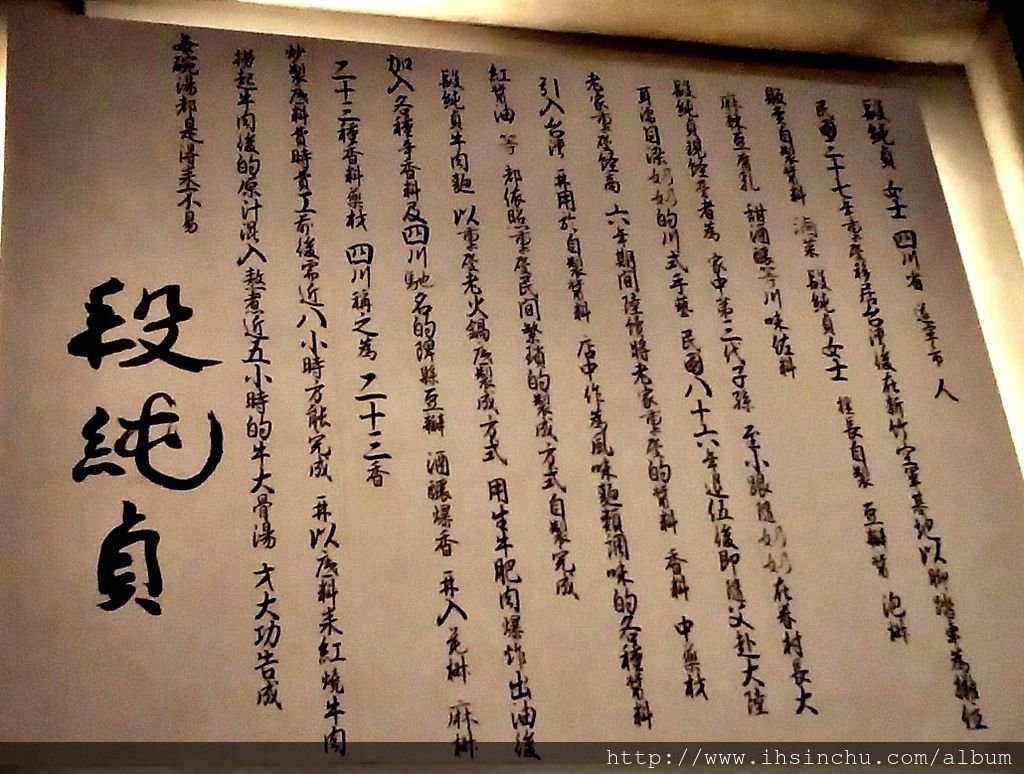 段純貞 女士 四川省 遂寧市 人
民國三十七年重慶移居台灣後在新竹空軍基地以腳踏車為攤位
販賣自製醬料 滷菜 段純貞女士 擅長自製 豆瓣醬 泡椒
麻辣豆腐乳 甜酒釀等川味佐料
段純貞現經營者為 家中第三代子孫 至小跟隨奶奶在眷村長大
耳濡目染奶奶的川式手藝 民國八十六年退伍後即隨父赴大陸
老家重慶經商 六年期間陸續將老家重慶的醬料 香料 中藥材
引入台灣 並用於自製醬料 店中作為風味麵類調味的各種醬料
紅醬油 等 都依照重慶民間繁瑣的製成方式自製完成
段純貞牛肉麵 以重慶老火鍋底製成方式 用生牛肥肉爆炸出油後
加入各種辛香料及四川馳名的郫縣豆瓣 酒釀爆香 再入花椒 麻椒
二十三種香料藥材 四川稱之為 二十三香
炒製底料費時費工前後需近八小時方能完成 再以底料來紅燒牛肉
撈起牛肉後的原汁混入熬煮近五小時的牛大骨湯 才大功告成
每碗湯都是得來不易
段純貞
http://www.ihsinchu.com/album